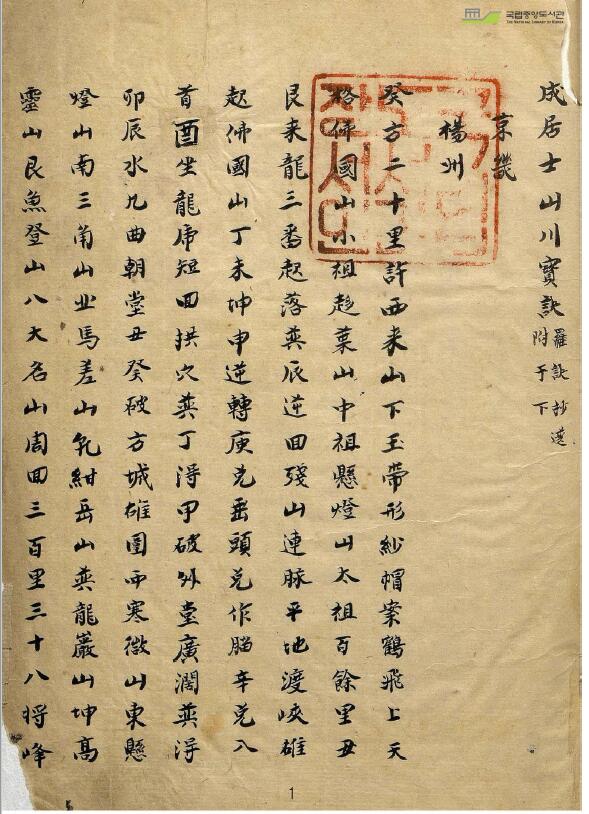 국립중앙도서관
THE NATIONAL LIBRARY OF KOREA
成居士山川寶訣 羅訣抄選附于下
京畿
楊州
癸方二十里許西来山下玉帶形紗帽案鶴飛上天
格佛國山小祖趁葉山中祖懸燈山太祖百餘里丑
艮来龍三番起落巽辰逆回殘山連脉平地渡峽雄
起佛國山丁未坤申逆轉庚兌垂頭兌作腦辛兌入
首酉坐龍虎短回拱穴巽丁淂甲破外堂廣濶巽淂
卯辰水九曲朝堂丑癸破方城雄圍西寒微山東懸
燈山南三角山北馬差山乾紺岳山巽龍巖山坤高
靈山艮魚登山八大名山周回三百里三十八将峰
1